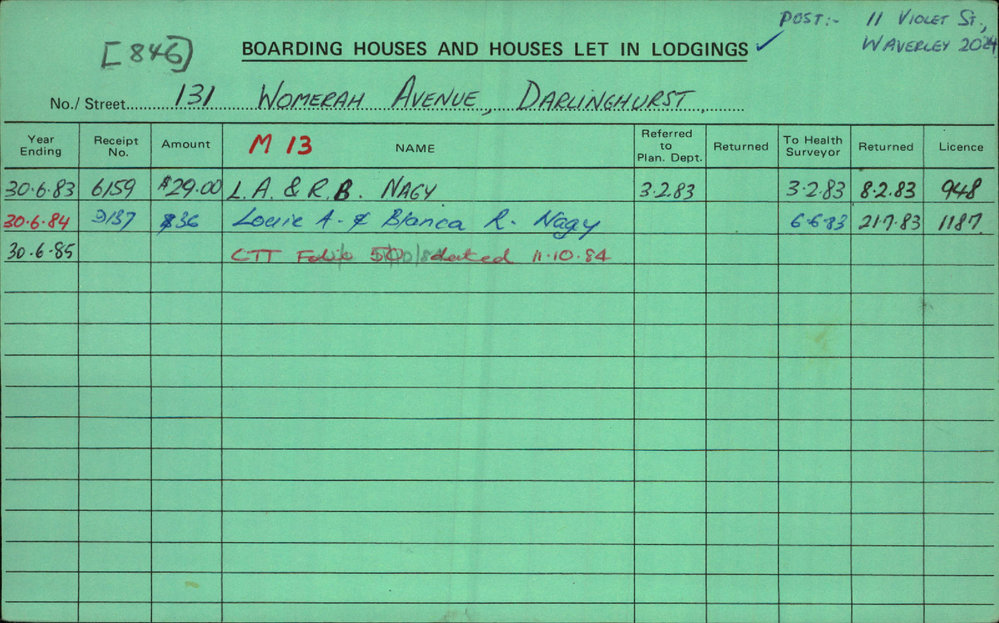 POST:- 11 VIOLET ST.,
WAVERLEY 2024
[846]
BOARDING HOUSES AND HOUSES LET IN LODGINGS ✓
No./ Street 131 WOMERAH AVENUE, DARLINGHURST,
Year Ending Receipt No. Amount M 13 NAME Referred to Plan. Dept. Returned To Health Surveyor Returned Licence
30.6.83 6159 $29.00 L.A. & R.B. NAGY 3.2.83 3.2.83 8.2.83 948
30.6.84 3137 $36 Louie A. & Blanca R. Nagy 6.6.83 21.7.83 1187
30.6.85 CTT Folio dated 11.10.84